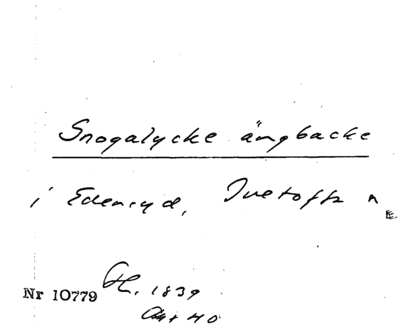 Snogalycke ängbacke
i Edenryd, Ivetofta
Nr 10779
1839